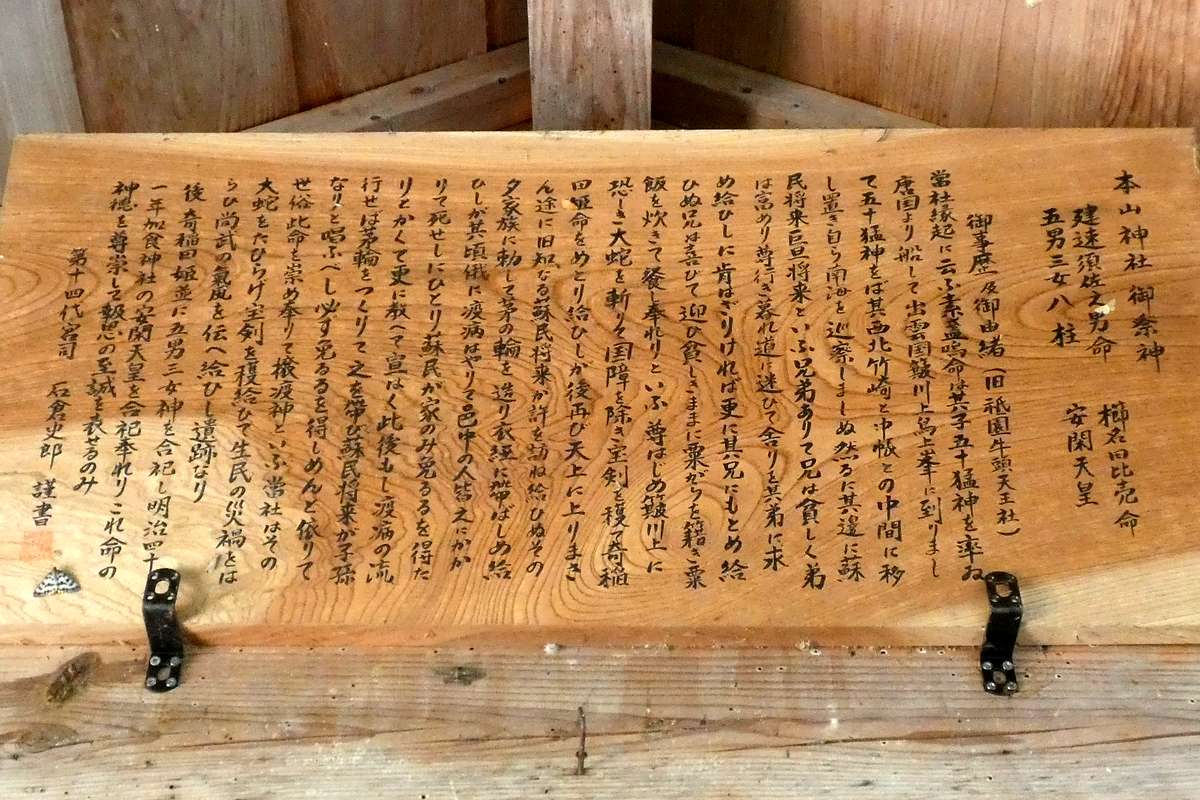 本山神社 御祭神
建速須佐之男命 櫛名田比売命
五男三女八柱 安閑天皇
御事歴及御由緒（旧祇園牛頭天王社）
當社縁起に云ふ素盞嗚命は其子五十猛神を率ゐ
唐国より船して出雲国簸川上鳥上峯に到りまし
て五十猛神をば其西北竹崎と中帳との中間に移
し置き自ら南海を巡祭しましぬ然るに其邊に蘇
民将来巨旦将来といふ兄弟ありて兄は貧しく弟
は富めり尊行き暮れ道に迷ひて舎りを其弟に求
め給ひしに肯はざりければ更に其兄にもとめ給
ひぬ兄は喜びて迎ひ貧しきままに粟がらを籍き粟
飯を炊きて餐し奉れりといふ尊はじめ簸川上に
恐しき大蛇を斬りて国障を除き宝剣を穫て奇稲
田姫命をめとり給ひしが後再び天上に上りまさ
ん途に旧知なる蘇民将来が許を訪ね給ひぬその
夕家族に勅して茅の輪を造り衣縁に帶ばしめ給
ひしが其頃俄に疫病はやりて邑中の人皆えにかか
りて死せしにひとり蘇民が家のみ免るるを得た
りとかくて更に教へて宣はく此後もし疫病の流
行せば茅輪をつくりて之を帶び蘇民将来が子孫
なりと唱ふべし必ず免るるを得しめんと依りて
世俗此命を崇め奉りて攘疫神といふ當社はその
大蛇をたひらげ宝剣を穫給ひて生民の災禍をは
らひ尚武の氣風を伝へ給ひし遺跡なり
後 奇稲田姫並に五男三女神を合祀し明治四十
一年加食神社の安閑天皇を合祀奉れりこれ命の
神徳を尊崇して報恩の至誠を表せるのみ
第十四代宮司 石倉史郎 謹書